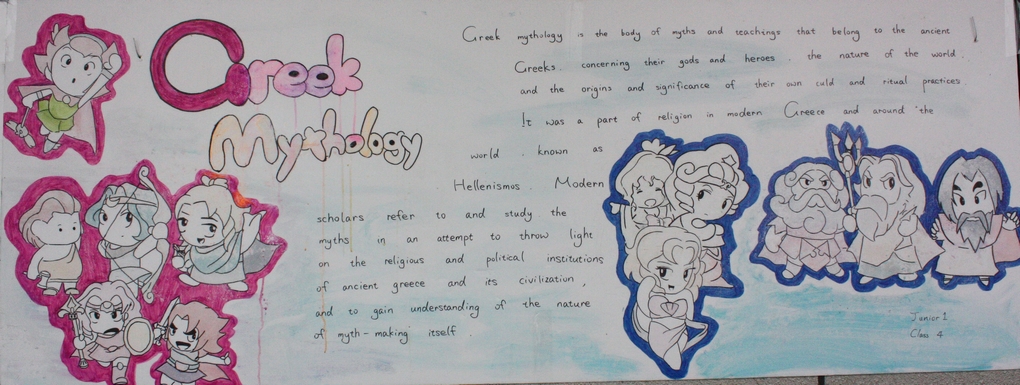 Greek
Mythology
Greek mythology is the body of myths and teachings that belong to the ancient
Greeks. concerning their gods and heroes. the nature of the world.
and the origins and significance of their own culd and ritual practices
It was a part of religion in modern Greece and around the
world. known as
Hellenismos. Modern
scholars refer to and study the
myths in an attempt to throw light
on the religious and political institutions
of ancient greece and its civilization,
and to gain understanding of the nature
of myth-making itself
Junior 1.
Class 4